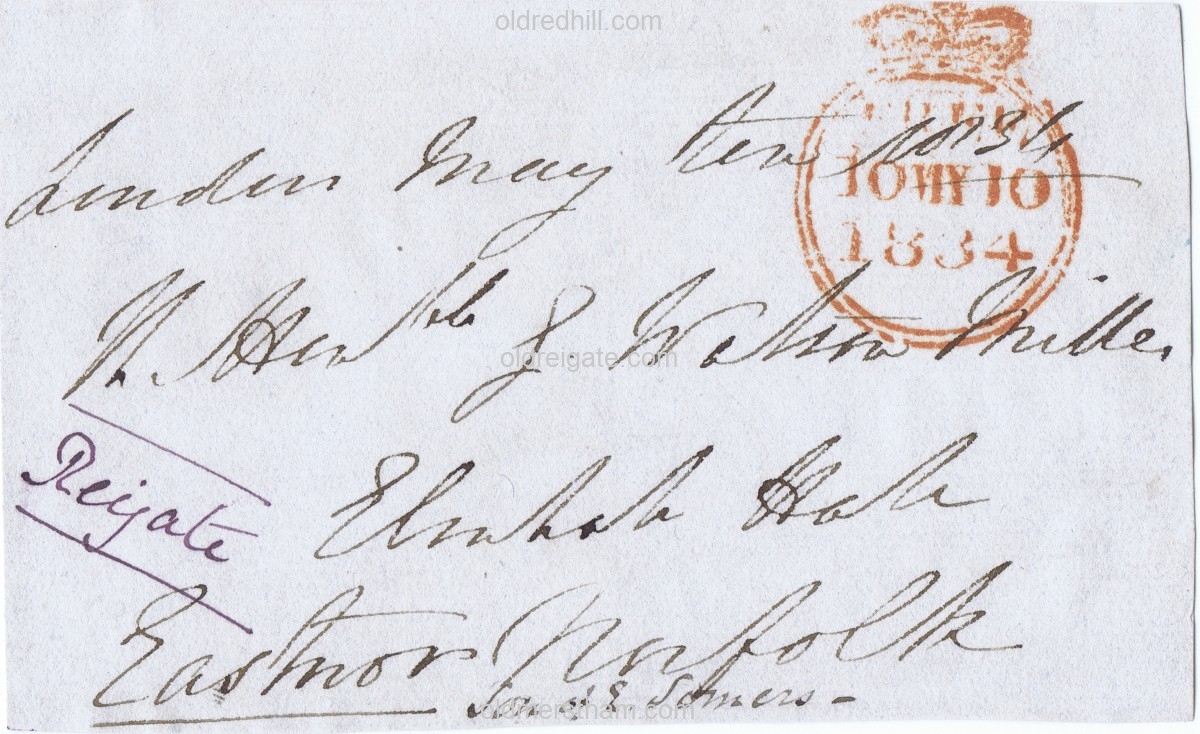 oldredhill.com
London May ten 1834
FREE
10 MY 10
1834
Honble Watson Milles
oldreigate.com
Reigate
Elmham Hall
Eastnor Norfolk
Son of E Somers -
oldmerstham.com